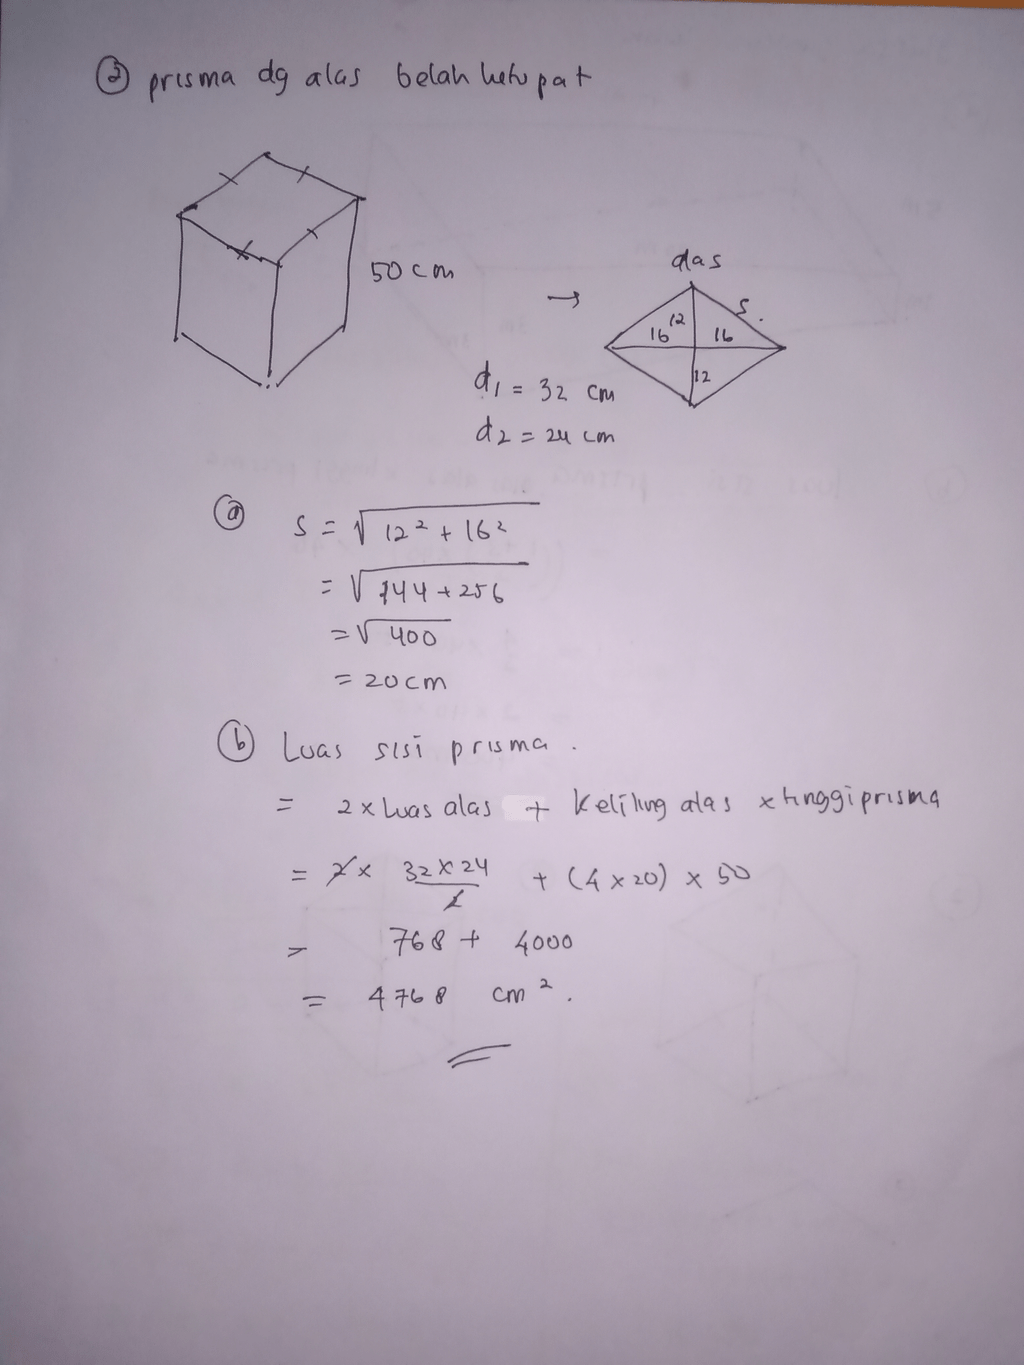 ② prisma dg alas belah ketupat
50 cm
→
alas
s.
12
16
16
12
d₁ = 32 cm
d₂ = 24 cm
ⓐ s = √12² + 16²
= √144 + 256
= √400
= 20 cm
ⓑ Luas sisi prisma.
= 2 x Luas alas + Keliling alas x tinggi prisma
= 2 x 32 x 24 / 2 + (4 x 20) x 50
= 768 + 4000
= 4768 cm².